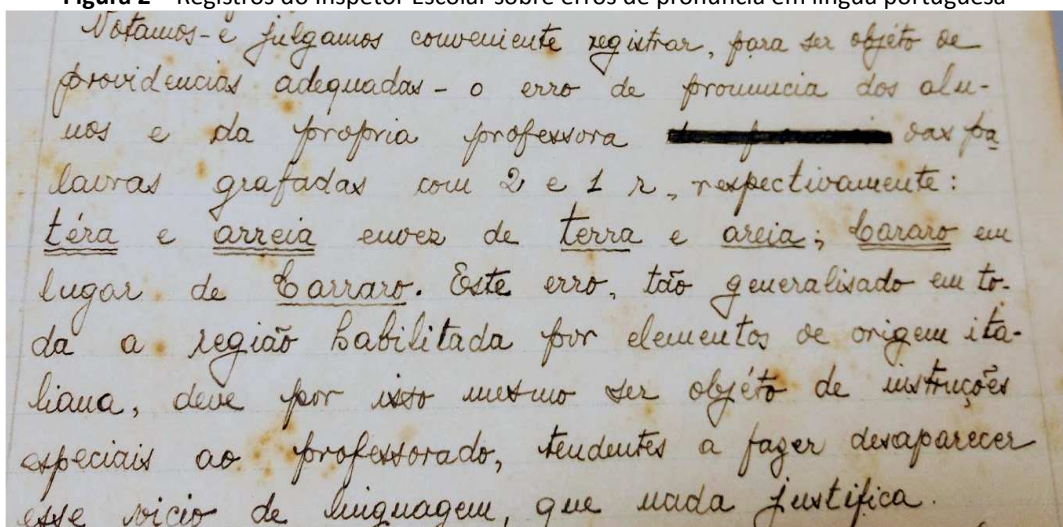 Figura 2 – Registros do Inspetor Escolar sobre erros de pronúncia em língua portuguesa
Notamos - e julgamos conveniente registrar, para ser objéto de
providencias adequadas - o erro de pronuncia dos alu-
nos e da propria professora das pa
lavras grafadas com 2 e 1 r, respectivamente:
téra e arreia envez de terra e areia; Cararo em
lugar de Carraro. Este erro, tão generalisado em to-
da a região habilitada por elementos de origem ita-
liana, deve por isso mesmo ser objéto de instruções
especiais ao professorado, tendentes a fazer desaparecer
esse vicio de linguagem, que nada justifica.